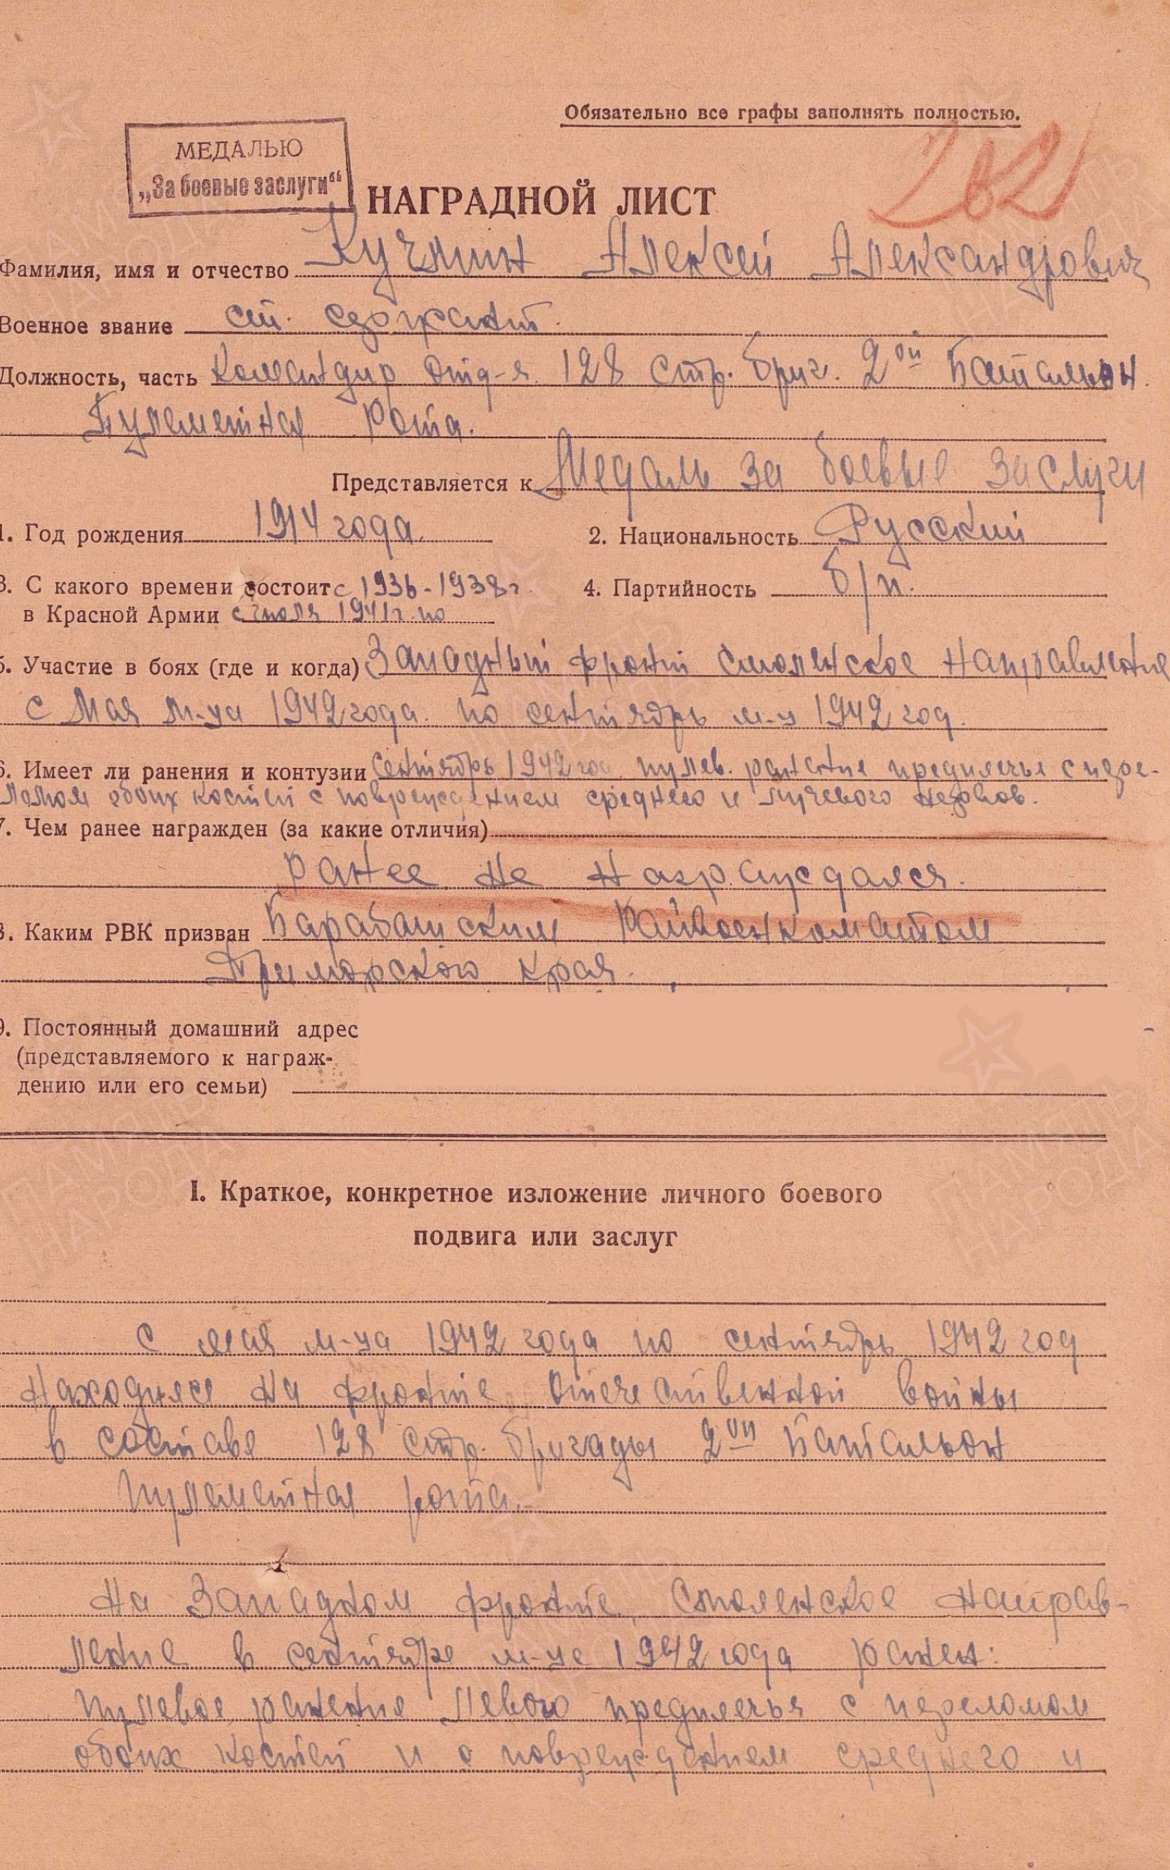 Обязательно все графы заполнять полностью.
262
МЕДАЛЬЮ
„За боевые заслуги“
НАГРАДНОЙ ЛИСТ
Фамилия, имя и отчество Алексей Александрович
Военное звание ст. сержант.
Должность, часть Командир отд-я 128 стр. бриг. 2ой Батальон
Пулеметная Рота.
Представляется к Медаль за боевые заслуги
1. Год рождения 1914 года.
2. Национальность Русский
3. С какого времени состоит с 1936-1938г
в Красной Армии с июля 1941г. по
4. Партийность б/п.
5. Участие в боях (где и когда) Западный фронт Смоленское Направление
с Мая м-ца 1942 года. по сентябрь м-ц 1942 год.
6. Имеет ли ранения и контузии Сентябрь 1942 год пулев. ранение предплечья с пере-
ломом обоих костей с повреждением среднего и лучевого нервов.
7. Чем ранее награжден (за какие отличия)
Ранее не Награждался.
8. Каким РВК призван Барабашским Райвоенкоматом
Приморского края.
9. Постоянный домашний адрес
(представляемого к награж-
дению или его семьи)
I. Краткое, конкретное изложение личного боевого
подвига или заслуг
с мая м-ца 1942 года по сентябрь 1942 год
Находился на фронте Отечественной войны
в составе 128 стр. бригады 2ой Батальон
пулеметная рота.
На Западном фронте, Смоленское Направ-
ление в сентябре м-це 1942 года ранен:
пулевое ранение левого предплечья с переломом
обоих костей и с повреждением среднего и
ПАМЯТЬ
НАРОДА